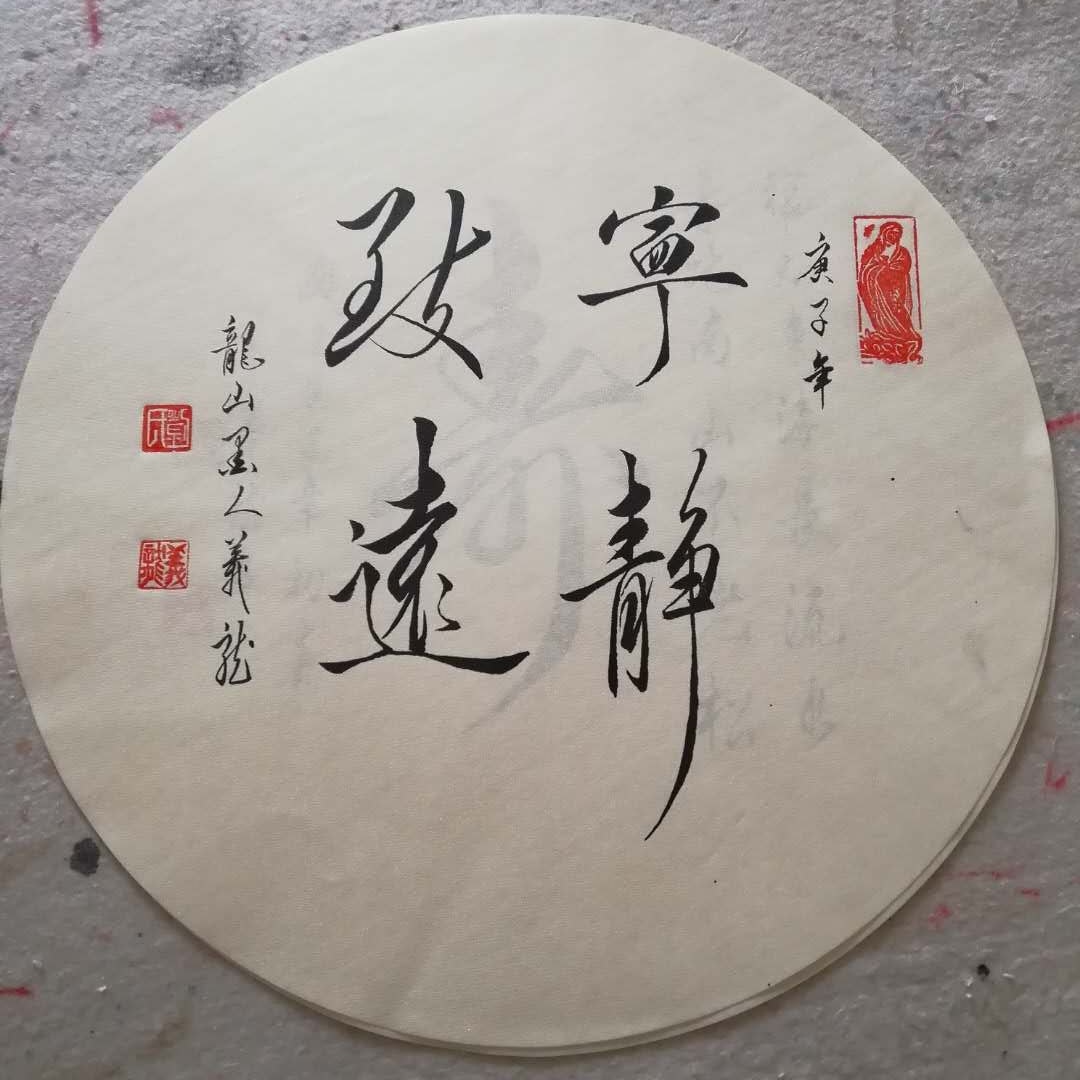 庚子年
寧靜
致遠
龍山墨人義龙
義龍